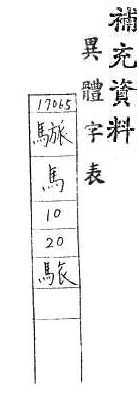 補充資料
異體字表
17065
馬
10
20